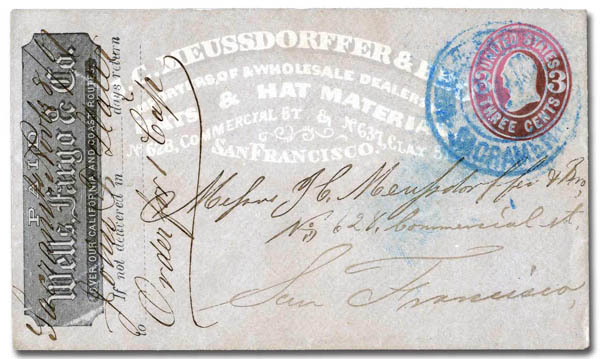 MEUSSDORFFER &
IMPORTERS, OF & WHOLESALE DEALERS
HATS & HAT MATERIA
No 628, COMMERCIAL ST & No 637, CLAY S
SAN FRANCISCO.
UNITED STATES
3 3
THREE CENTS
SACRAMEN
PAID
Wells, Fargo & Co.
OVER OUR CALIFORNIA AND COAST ROUTES
If not delivered in days return
to Order for Cap
Messrs J. C. Meussdorffer & Bro,
No 628, Commercial st.
San Francisco,